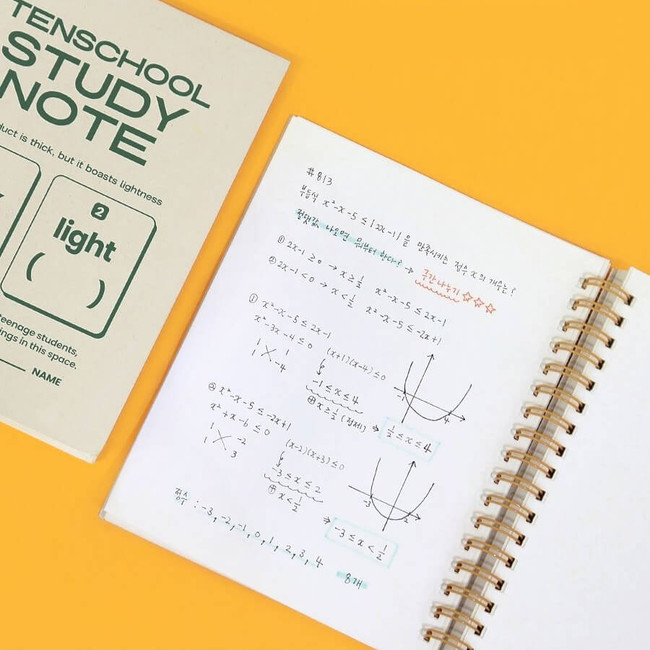 TENSCHOOL
STUDY
NOTE
duct is thick, but it boasts lightness
2
light
( )
teenage students,
ings in this space.
NAME
#813
부등식 x²-x-5 ≤ |2x-1| 을 만족시키는 정수 x의 개수는?
절댓값 나오면 뭐부터 한다? → 구간 나누기 ☆☆☆
① 2x-1 ≥ 0 → x ≥ 1/2 x²-x-5 ≤ 2x-1
② 2x-1 < 0 → x < 1/2 x²-x-5 ≤ -2x+1
① x²-x-5 ≤ 2x-1
x²-3x-4 ≤ 0
1 1
1 -4
(x+1)(x-4) ≤ 0
-1 ≤ x ≤ 4
⊕ x ≥ 1/2 (전제)
-1 4
⇒ 1/2 ≤ x ≤ 4
② x²-x-5 ≤ -2x+1
x²+x-6 ≤ 0
1 -2
1 3
(x-2)(x+3) ≤ 0
-3 ≤ x ≤ 2
⊕ x < 1/2
-3 2
⇒ -3 ≤ x < 1/2
정수 : -3, -2, -1, 0, 1, 2, 3, 4
8개